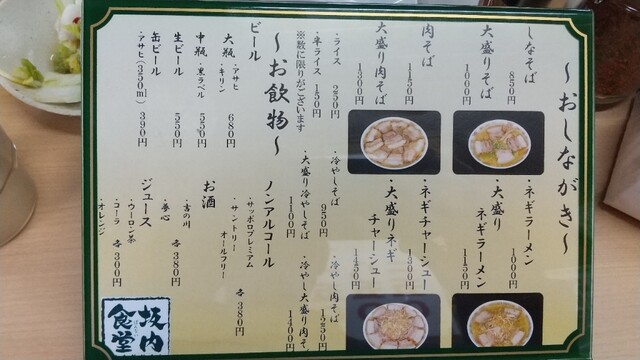 ～おしながき～
しなそば
850円
大盛りそば
1000円
肉そば
1150円
大盛り肉そば
1300円
・ライス
250円
・半ライス 150円
※数に限りがございます
・ネギラーメン
1000円
・大盛り
ネギラーメン
1150円
・ネギチャーシュー
1300円
・大盛りネギ
チャーシュー
1450円
・冷やしそば
950円
・大盛り冷やしそば
1100円
・冷やし肉そば
1250円
・冷やし大盛り肉そ
1400円
～お飲物～
ビール
大瓶 ・アサヒ
・キリン
680円
中瓶 ・黒ラベル
550円
生ビール
550円
缶ビール
・アサヒ(350ml) 390円
ノンアルコール
・サッポロプレミアム
・サントリー
オールフリー
各380円
お酒
・吉の川
・夢心
各380円
ジュース
・ウーロン茶
・コーラ
・オレンジ
各300円
坂内
食堂